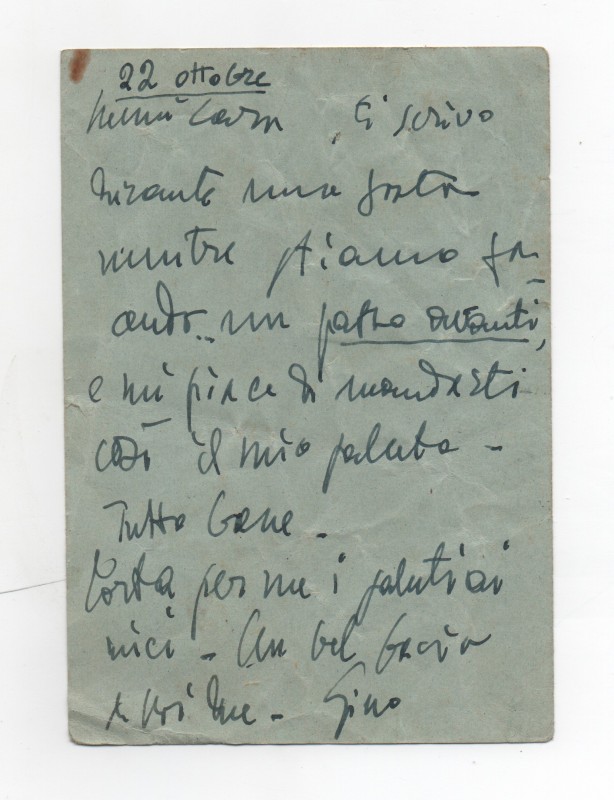 22 ottobre
Mimì cara Ti scrivo
durante una sosta
mentre stiamo fa-
cendo un passo avanti,
e mi piace di mandarti
così il mio saluto -
Tutto bene -
Porta per me i saluti ai
miei - Un bel bacio
a voi due - Gino